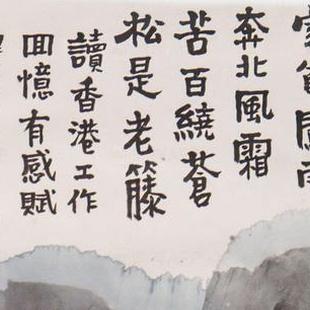 奔北風霜
苦百繞蒼
松是老籐
讀香港工作
回憶有感賦